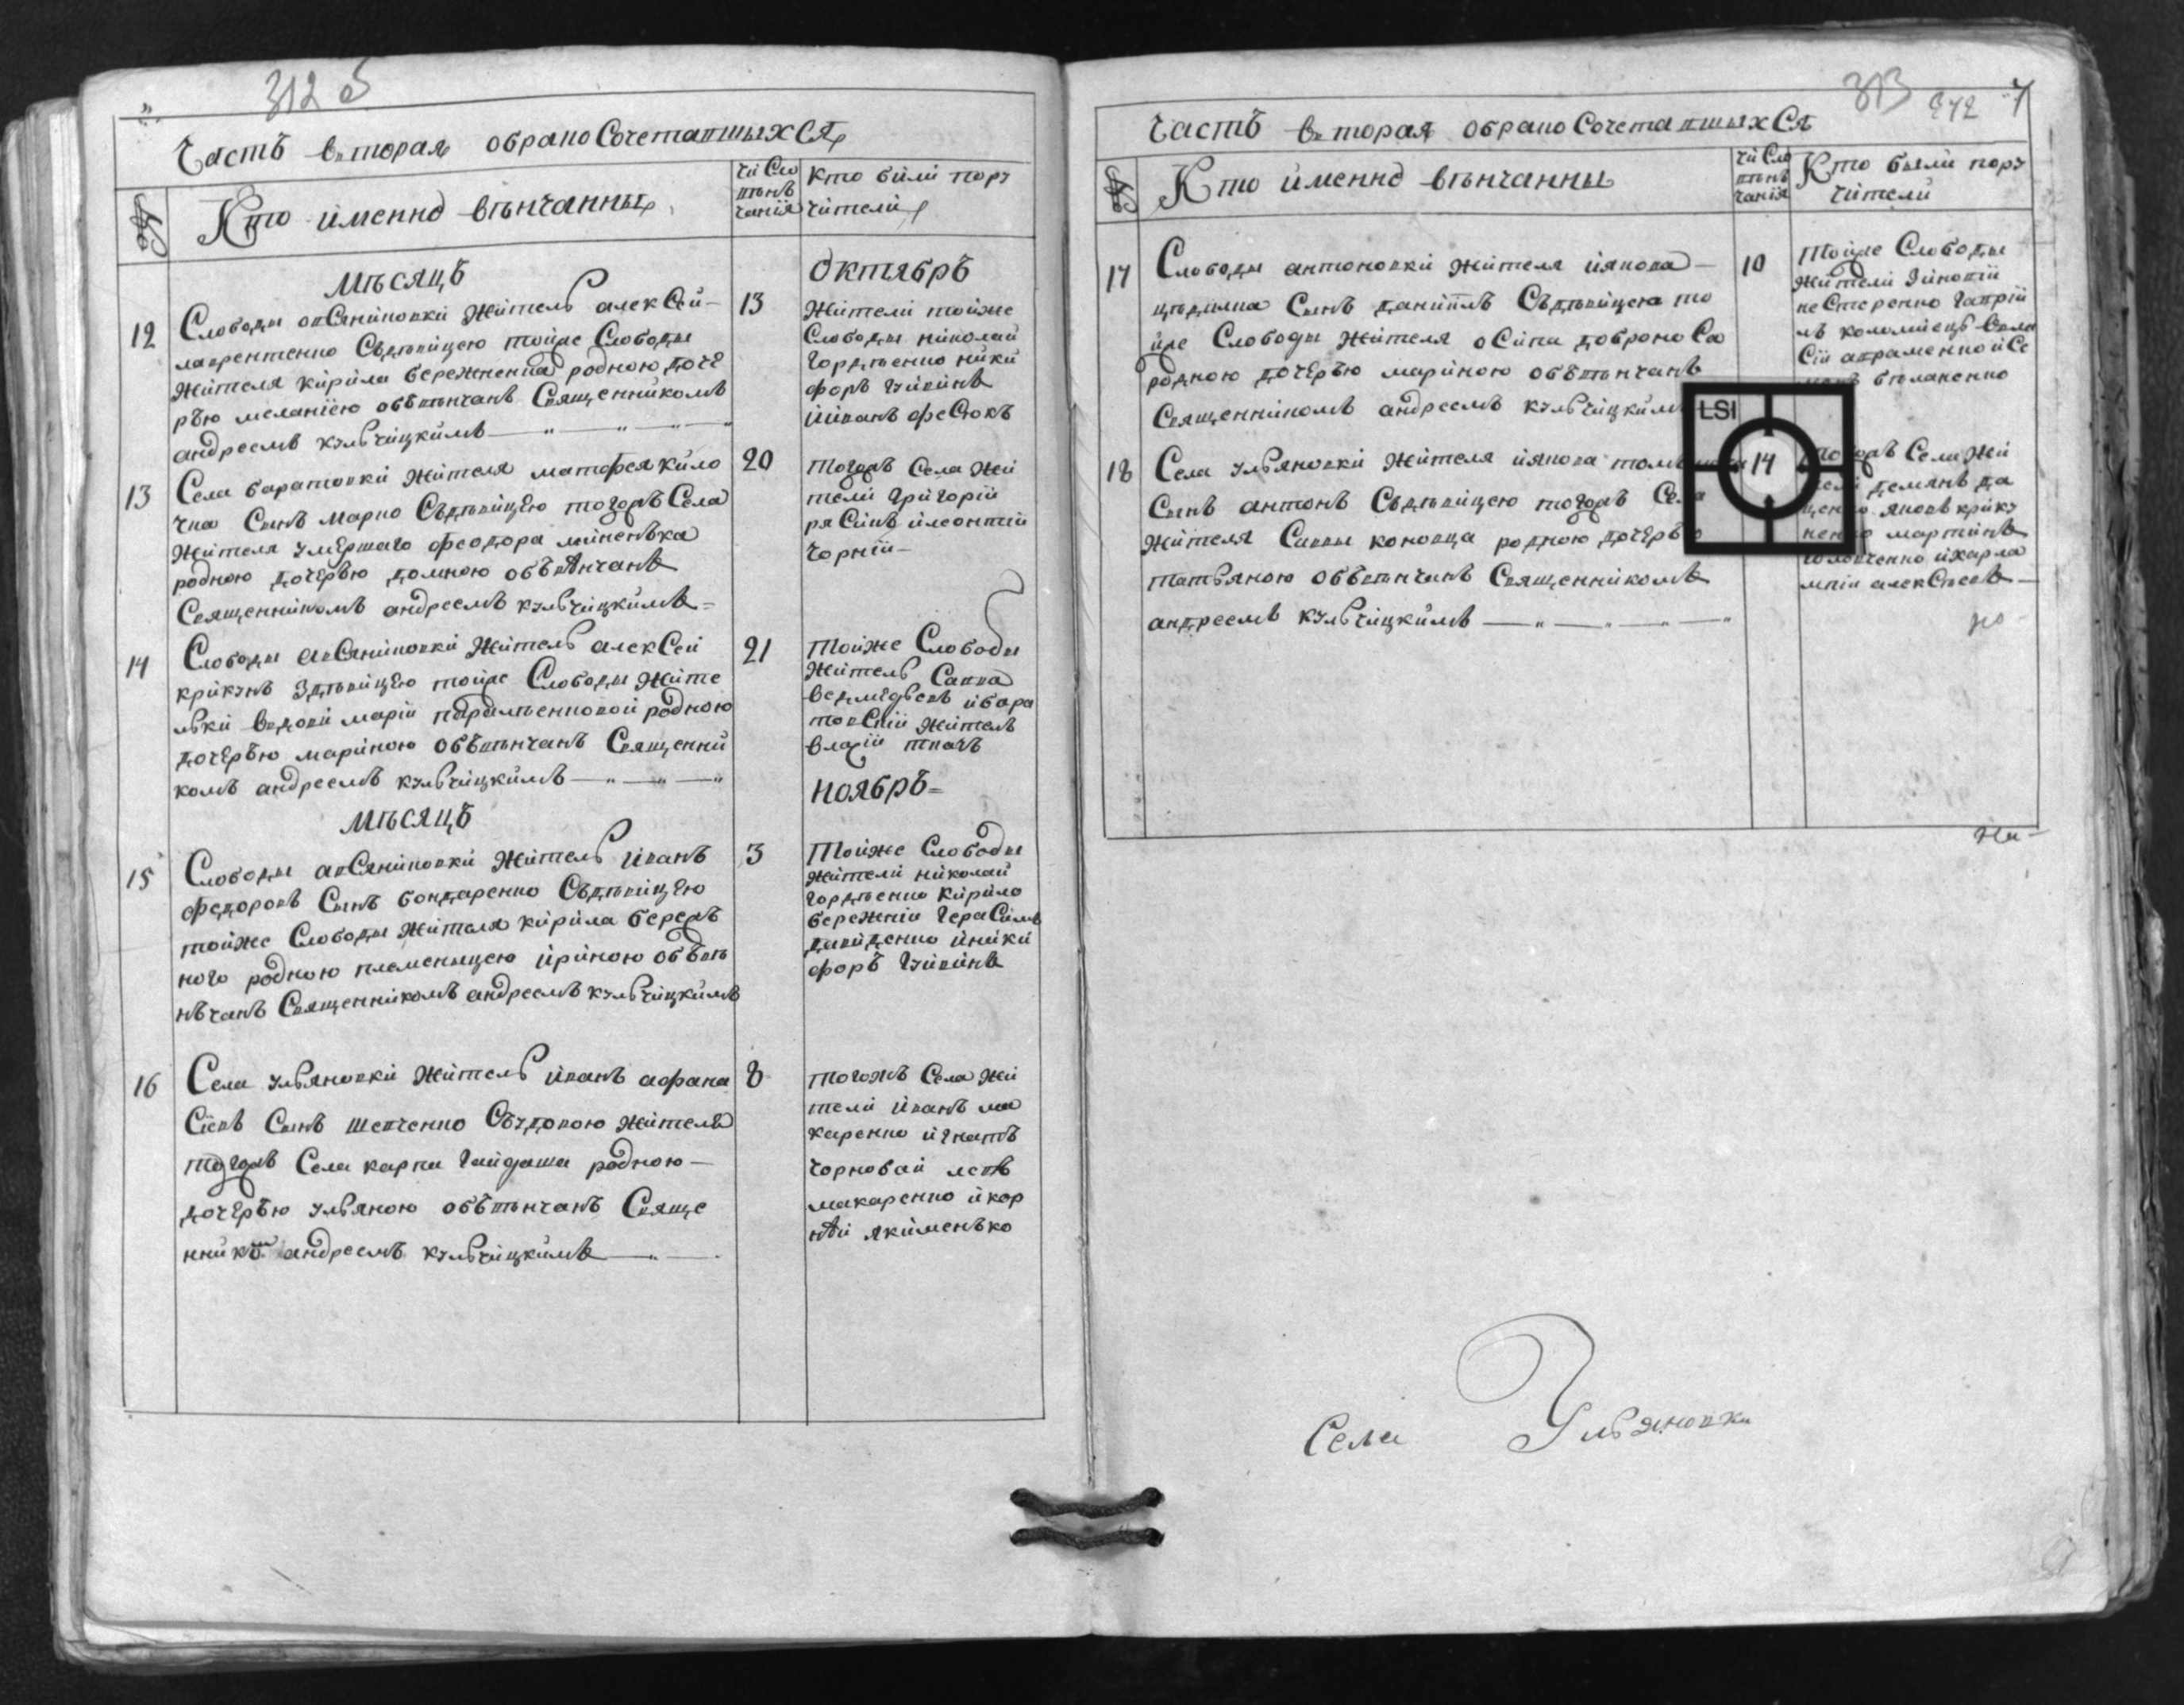 312 б
Часть вторая обрако Сочетавшыхся
№
Кто именно венчанны
число
венъ
чанія
Кто били пору
чители
Мѣсяцъ
Октябрь
12
Слободы овсяниковки житель алексѣй
лавренченко Сьдѣвицею тойже Слободы
жителя кирила бережненка родною доче
рью меланіею обвѣнчанъ Священникомъ
андреемъ кульчицкимъ
13
Жители тойже
Слободы николай
Гордѣенко ники
форъ
ииванъ фесюкъ
13
Села баратовки жителя матфея кило
чка Сынъ марко Сьдѣвицею тогожъ Села
жителя умершаго феодора
родною дочерью домною обвѣнчанъ
Священникомъ андреемъ кульчицкимъ
20
тогожъ Села жи
тели григорій
илеонтій
чорній
14
Слободы авсяниковки житель алексей
крикунъ Здѣвицею тойже Слободы жите
льки вдовы маріи родною
дочерью мариною обвѣнчанъ Священни
комъ андреемъ кульчицкимъ
21
Тойже Слободы
житель Савва
ведмедѣвъ ибара
товскій житель
власій ткачъ
Мѣсяцъ
Ноябрь
15
Слободы авсяниковки житель иванъ
федоровъ Сынъ бондаренко Сьдѣвицею
тойже Слободы жителя кирила береж
ного родною племеницею ириною обвѣ
нчанъ Священникомъ андреемъ кульчицкимъ
3
Тойже Слободы
жители николай
гордѣенко кирило
бережній герасимъ
давиденко иники
форъ
16
Села ульяновки житель иванъ афана
сіевъ Сынъ шевченко Сьудовою жителя
тогожъ Села карпа гайдаша родною
дочерью ульяною обвѣнчанъ Свяще
нникомъ андреемъ кульчицкимъ
8
тогожъ Села жи
тели иванъ ма
каренко игнатъ
чорновай левъ
макаренко икор
нѣй якименько
313 942 7
Часть вторая обрако Сочетавшыхся
№
Кто именно вѣнчанны
число
вѣнъ
чанія
Кто были пору
чители
17
Слободы антоновки жителя иякова
Сынъ даніилъ Сьдѣвицею то
йже Слободы жителя осипа доброно Са
родною дочерью мариною обвѣнчанъ
Священникомъ андреемъ кульчицкимъ
10
Тойже Слободы
жители Зіновій
нестеренко гаврій
лъ коломіецъ вла
сій авраменко исе
бѣланенко
LSI
14
18
Села ульяновки жителя иякова
Сынъ антонъ Сьдѣвицею тогожъ Села
жителя Саввы коновца родною дочерью
татьяною обвѣнчанъ Священникомъ
андреемъ кульчицкимъ
Села жи
демянъ да
яковъ крику
мартинъ
ихарла
мпій алексеевъ
Села Ульяновки